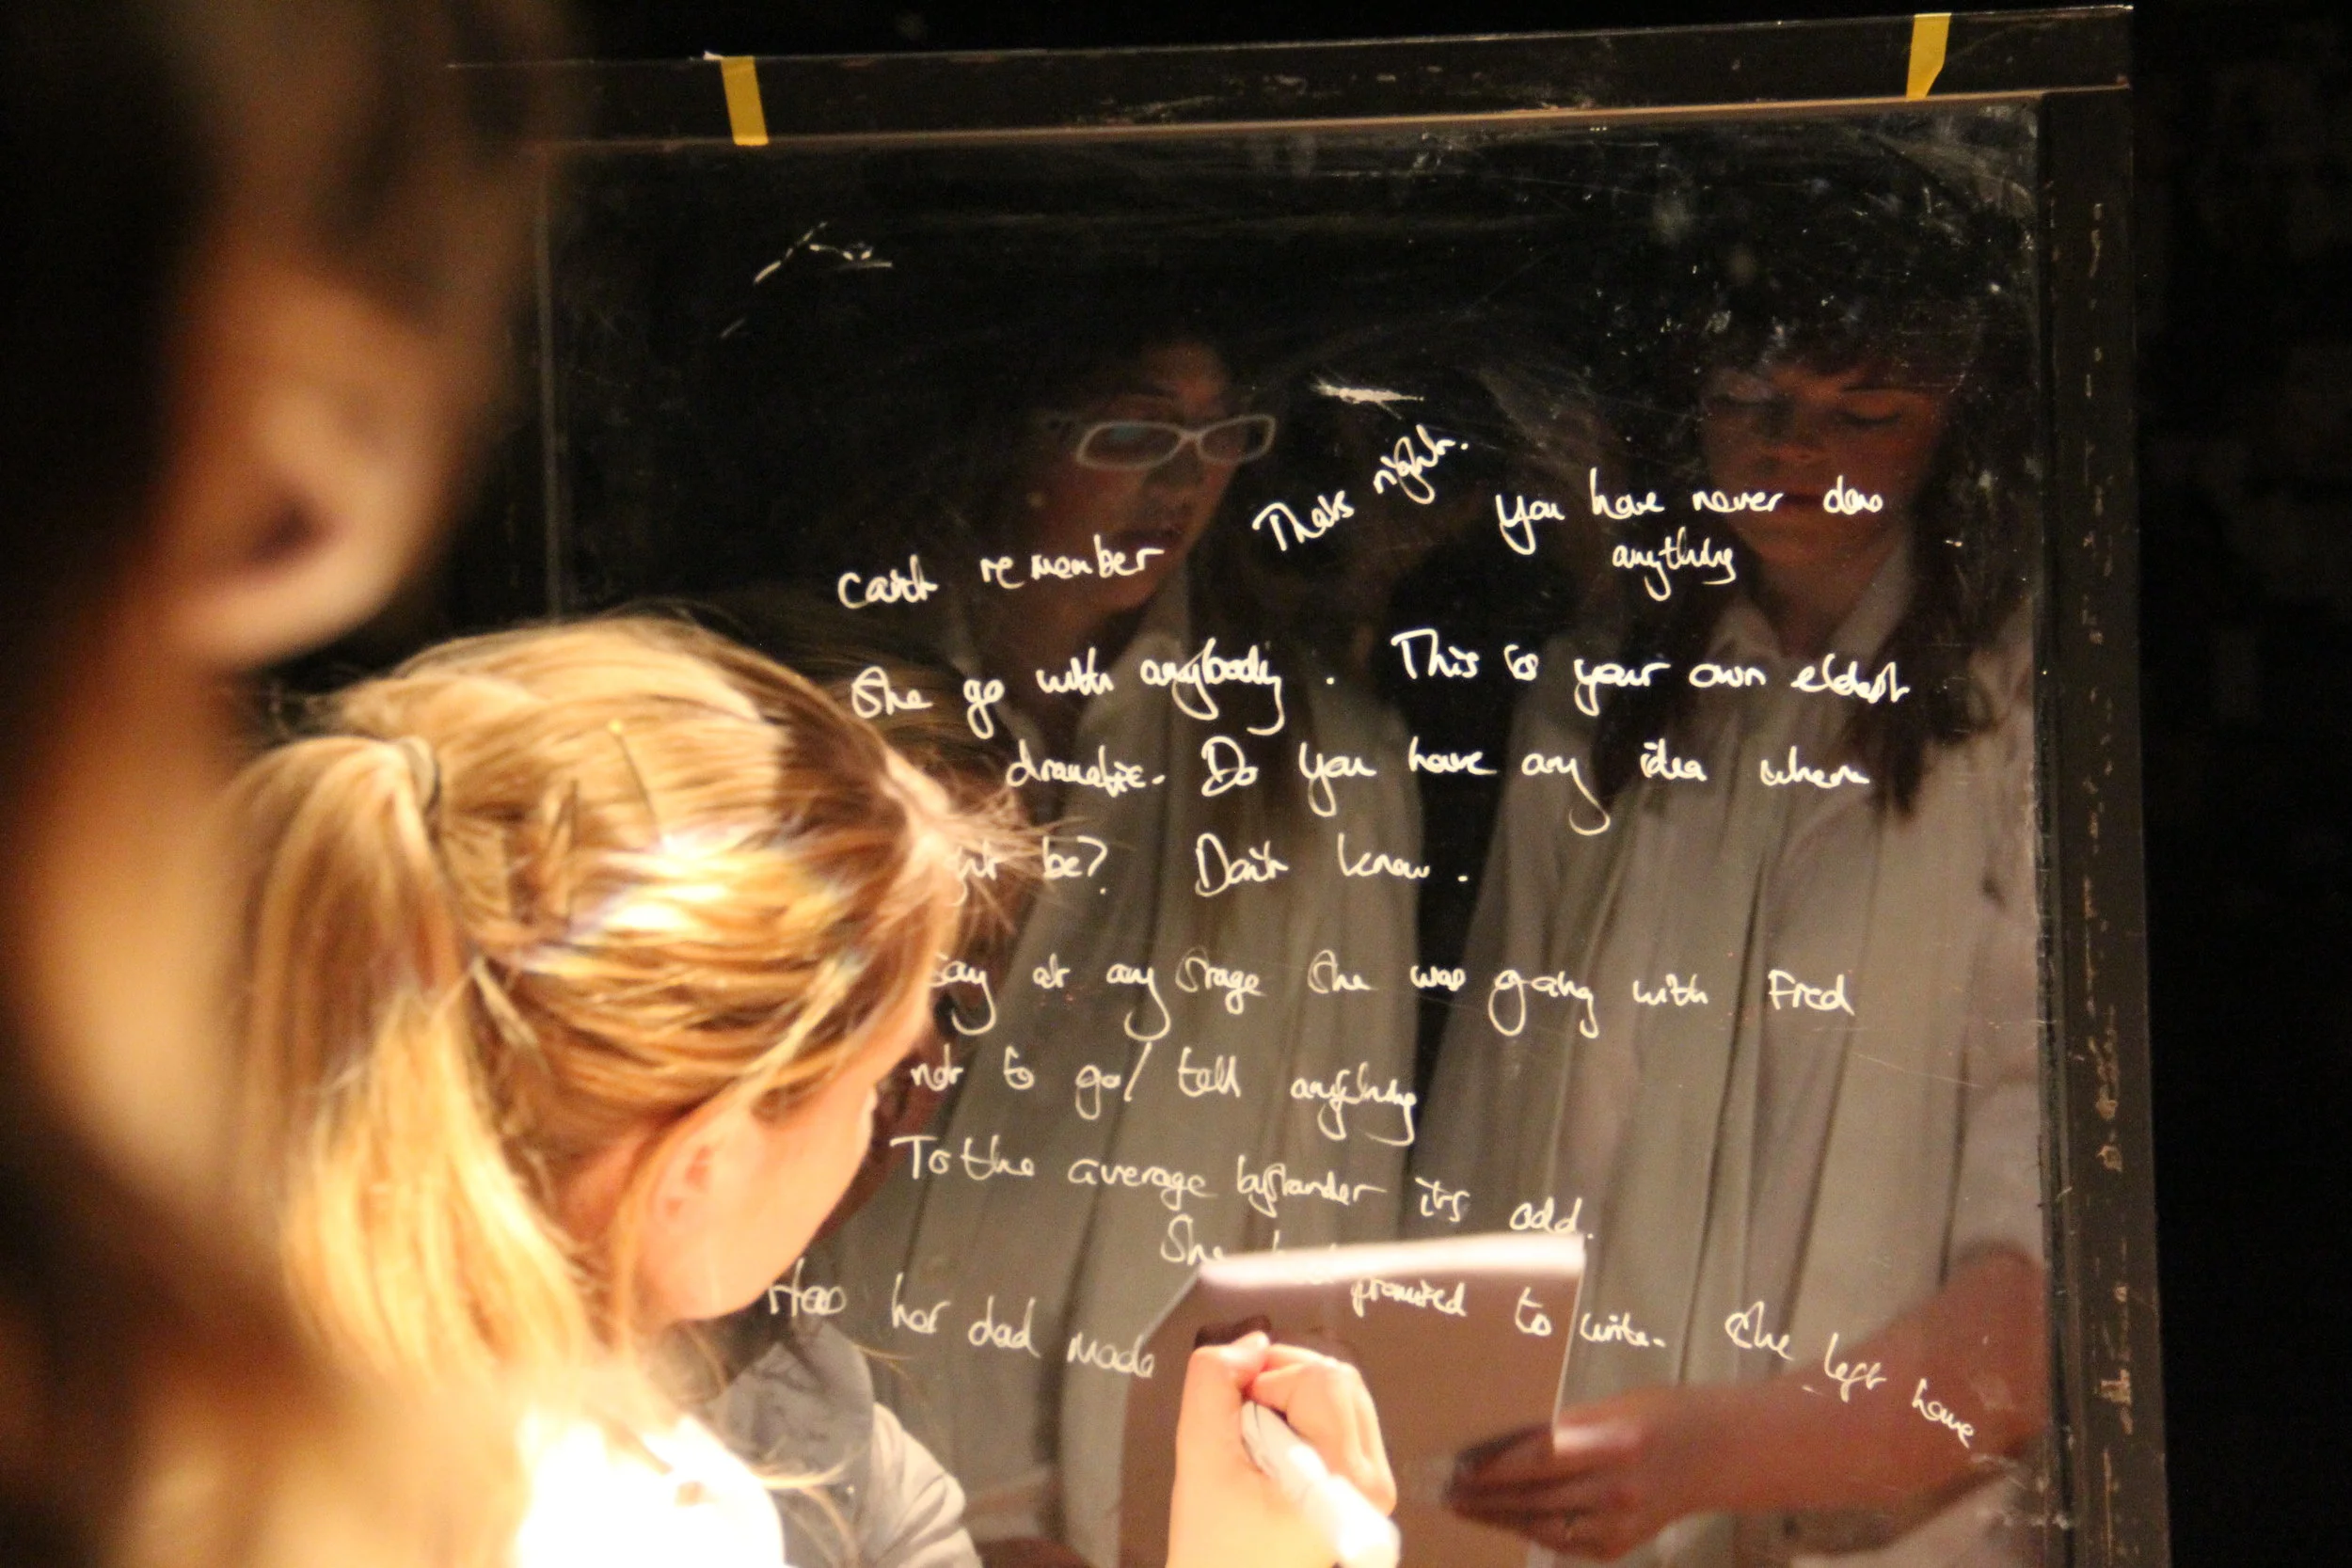 can't remember Thats right. You have never done
anything
She go with anybody. This is your own eldest
dramatic. Do you have any idea where
be? Don't know.
Say at any stage she was going with Fred
not to go/ tell anything
To the average bystander it's odd.
She promised to write. She left home
Has her dad made